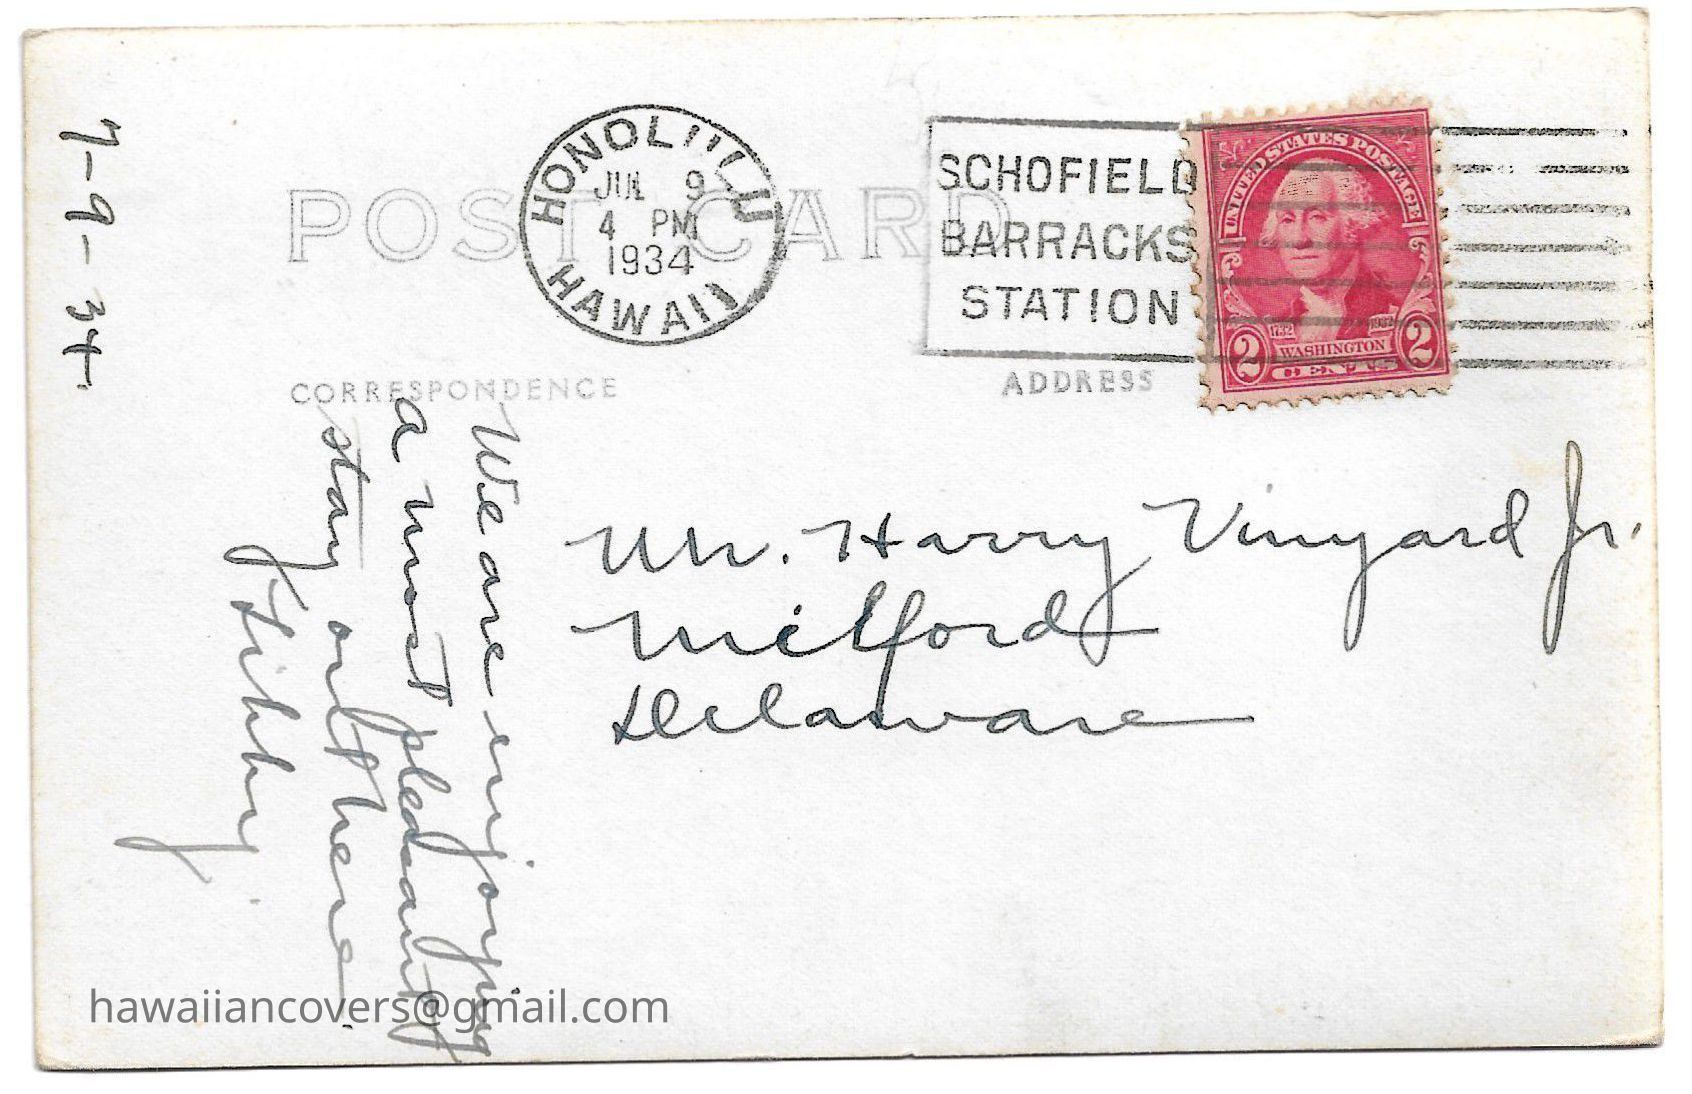 7-9-34.
POST CARD
HONOLULU
JUL 9
4 PM
1934
HAWAII
SCHOFIELD
BARRACKS
STATION
UNITED STATES POSTAGE
1732
1932
WASHINGTON
2
CENTS
2
CORRESPONDENCE
ADDRESS
We are enjoying
a most pleasant
stay out here.
Libby.
Mr. Harry Vinyard Jr.
Milford
Delaware
hawaiiancovers@gmail.com